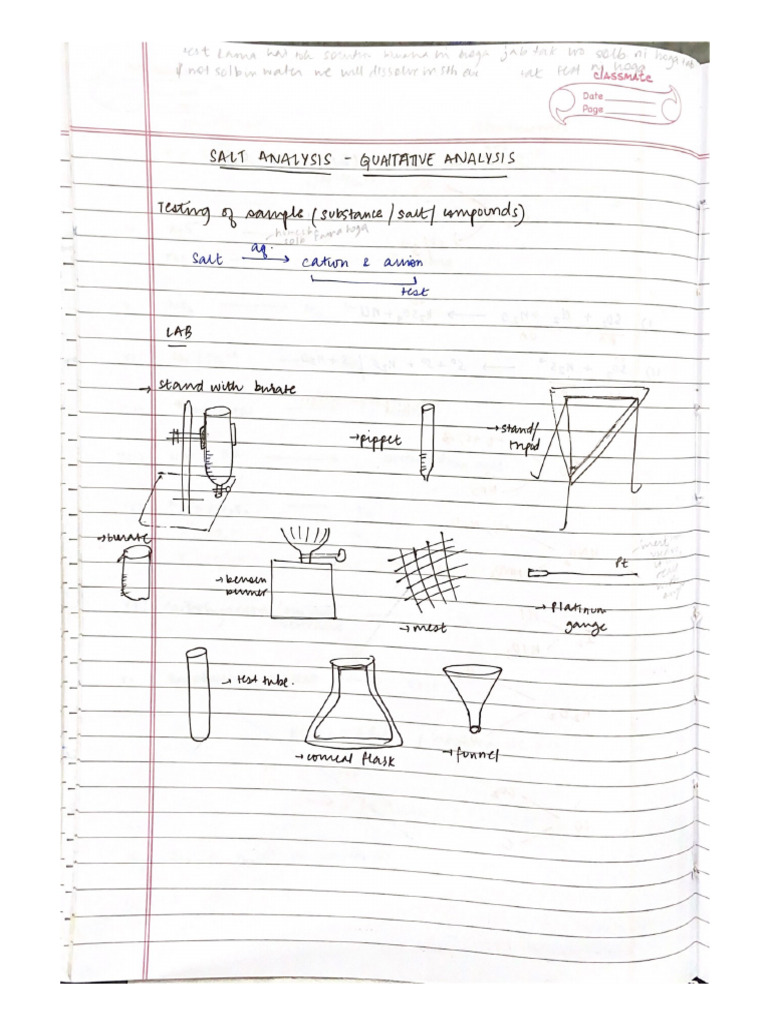 test karna hai toh solution banana hi hoga jab tak wo solb ni hoga tab
if not solb in water we will dissolve in sth tak test ni hoga
classmate
Date
Page
SALT ANALYSIS - QUAITATIVE ANALYSIS
Testing of sample (substance/salt/compounds)
hamesha
solb hoga
Salt aq. → cation & anion
test
LAB
→ stand with burate
→ pippet
→ stand/
tripod
→ burate
→ bensen
burner
→ mest
Pt
→ Platinum
gauge
→ test tube.
→ conical flask
→ funnel